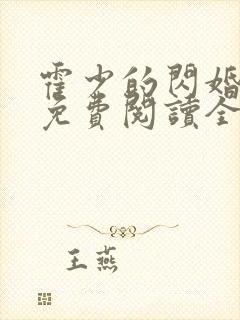 霍少的閃婚
免費閱讀全
王燕